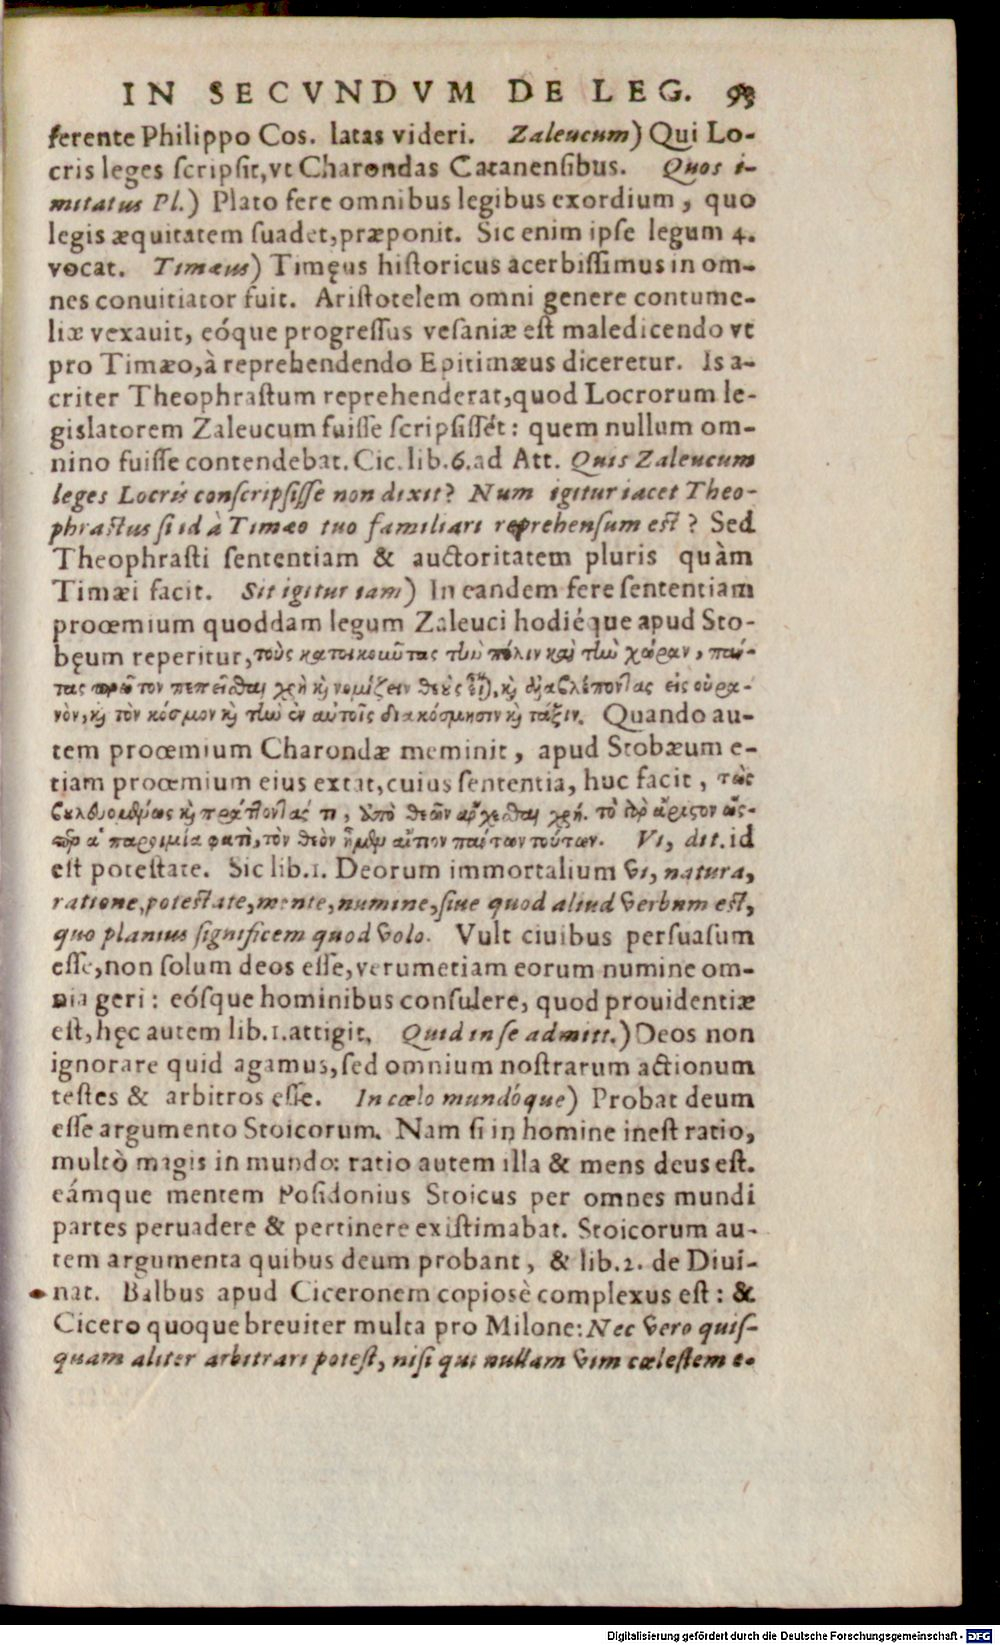 IN SECVNDVM DE LEG. 93
ferente Philippo Cos. latas videri. Zaleucum) Qui Lo-
cris leges scripsit, vt Charondas Catanensibus. Quos i-
mitatus Pl.) Plato fere omnibus legibus exordium, quo
legis æquitatem suadet, præponit. Sic enim ipse legum 4.
vocat. Timæus) Timęus historicus acerbissimus in om-
nes conuitiator fuit. Aristotelem omni genere contume-
liæ vexauit, eóque progressus vesaniæ est maledicendo vt
pro Timæo, à reprehendendo Epitimæus diceretur. Is a-
criter Theophrastum reprehenderat, quod Locrorum le-
gislatorem Zaleucum fuisse scripsisset: quem nullum om-
nino fuisse contendebat. Cic. lib. 6. ad Att. Quis Zaleucum
leges Locris conscripsisse non dixit? Num igitur iacet Theo-
phrastus si id à Timæo tuo familiari reprehensum est? Sed
Theophrasti sententiam & auctoritatem pluris quàm
Timæi facit. Sit igitur iam) In eandem fere sententiam
proœmium quoddam legum Zaleuci hodiéque apud Sto-
bęum reperitur, τοὺς κατοικοῦντας τὴν πόλιν καὶ τὴν χώραν, πάν-
τας πρῶτον πεπεῖσθαι χρὴ κỳ νομίζειν θεοὺς εἶ), κỳ ἀναβλέποντας εἰς οὐρα-
νὸν, κỳ τὸν κόσμον κỳ τὴν ἐν αὐτοῖς διακόσμησιν κỳ τάξιν. Quando au-
tem proœmium Charondæ meminit, apud Stobæum e-
tiam proœmium eius extat, cuius sententia, huc facit, τὼς
βουλευομένως κỳ πράττοντάς τι, ἀπὸ θεῶν ἄρχεσθαι χρή. τὸ γὰρ ἄριστον ὥς-
περ ἁ παροιμία φατὶ, τὸν θεὸν ἦμεν αἴτιον πάντων τούτων. Vi, dit. id
est potestate. Sic lib. 1. Deorum immortalium vi, natura,
ratione, potestate, mente, numine, siue quod aliud verbum est,
quo planius significem quod volo. Vult ciuibus persuasum
esse, non solum deos esse, verumetiam eorum numine om-
nia geri: eósque hominibus consulere, quod prouidentiæ
est, hęc autem lib. 1. attigit. Quid in se admitt.) Deos non
ignorare quid agamus, sed omnium nostrarum actionum
testes & arbitros esse. In cœlo mundóque) Probat deum
esse argumento Stoicorum. Nam si in homine inest ratio,
multò magis in mundo: ratio autem illa & mens deus est.
eámque mentem Posidonius Stoicus per omnes mundi
partes peruadere & pertinere existimabat. Stoicorum au-
tem argumenta quibus deum probant, & lib. 2. de Diui-
nat. Balbus apud Ciceronem copiosè complexus est: &
Cicero quoque breuiter multa pro Milone: Nec vero quis-
quam aliter arbitrari potest, nisi qui nullam vim cœlestem e-
Digitalisierung gefördert durch die Deutsche Forschungsgemeinschaft - DFG